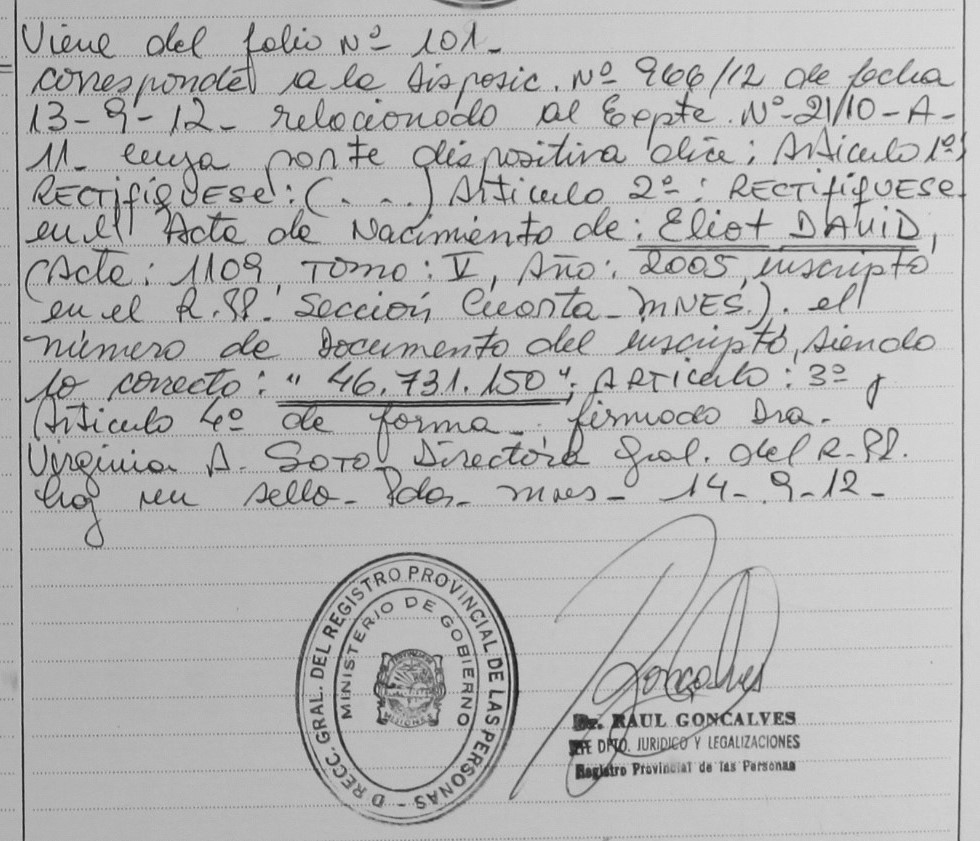 Viene del folio Nº 101-
corresponde a la Disposic. Nº 966/12 de fecha
13-9-12- relacionado al Expte. Nº-21/10-A-
11- cuya parte dispositiva dice: Articulo 1º)
RECTIFÍQUESE: (. . .) Articulo 2º: RECTIFÍQUESE
en el Acta de Nacimiento de: Eliot DAVID,
(Acta: 1109, Tomo: V, Año: 2005, inscripto
en el R.PP. Sección Cuarta-MNES.). el
número de Documento del inscripto, siendo
lo correcto: "46.731.150"; ARTiculo: 3º y
Articulo 4º de forma-. firmado Dra.
Virginia A. SOTO Directora Gral. del R.PP.
hay un sello- Pdas- mnes- 14-9-12-
DRECC. GRAL. DEL REGISTRO PROVINCIAL DE LAS PERSONAS -
MINISTERIO DE GOBIERNO
MISIONES
Goncalves
Dr. RAUL GONCALVES
JEFE DPTO. JURIDICO Y LEGALIZACIONES
Registro Provincial de las Personas